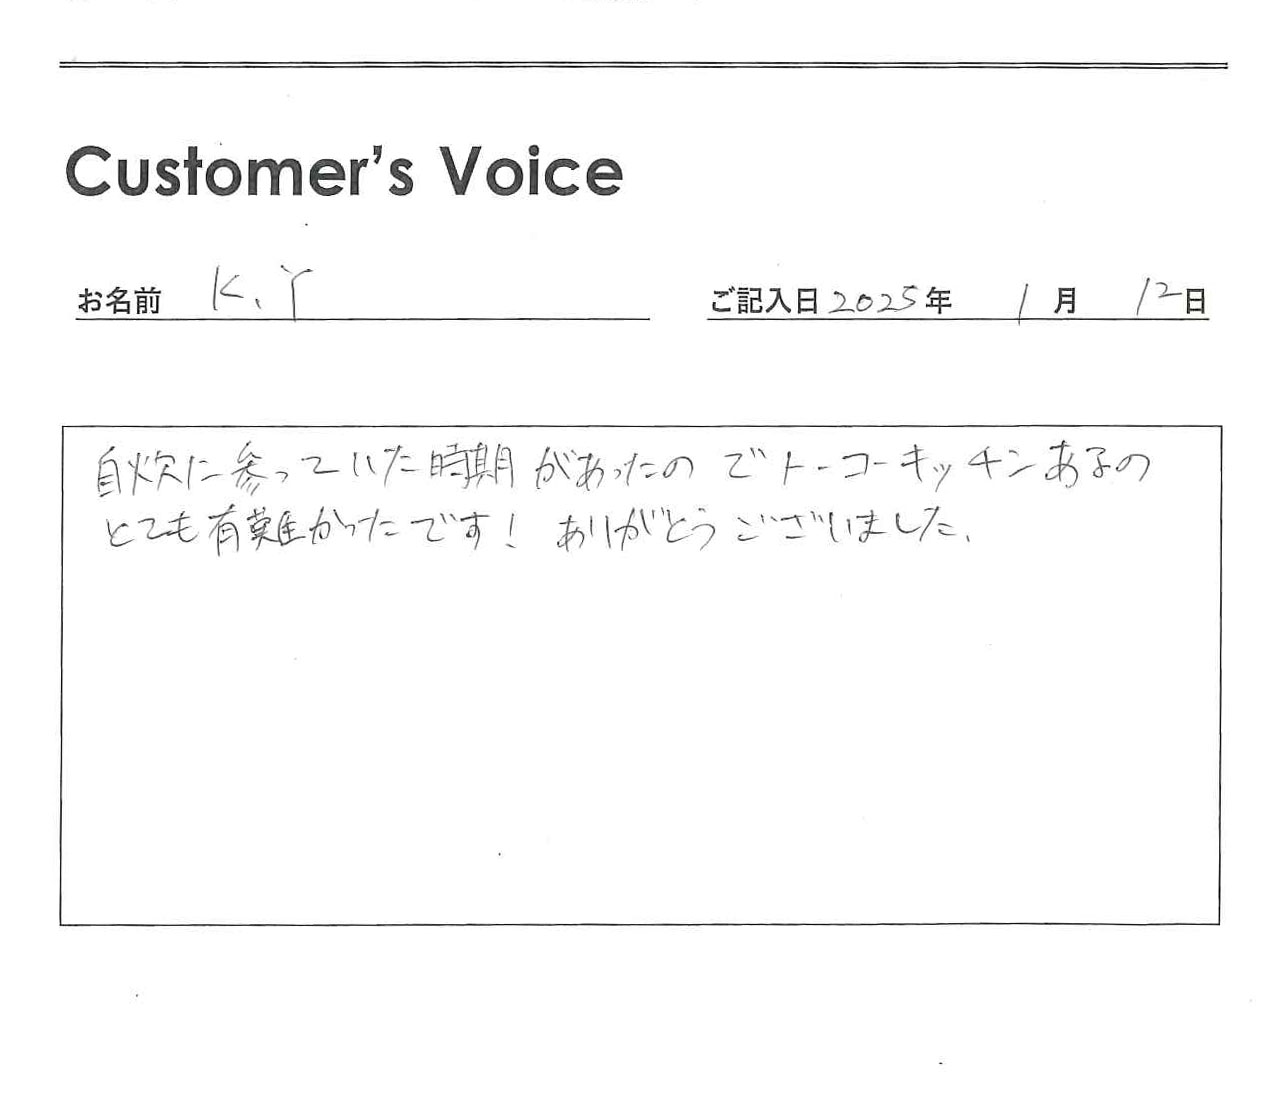 Customer's Voice
お名前 K.Y
ご記入日 2025年 1月 12日
自炊に参っていた時期があったのでトーコーキッチンあるの
とても有難かったです! ありがとうございました.